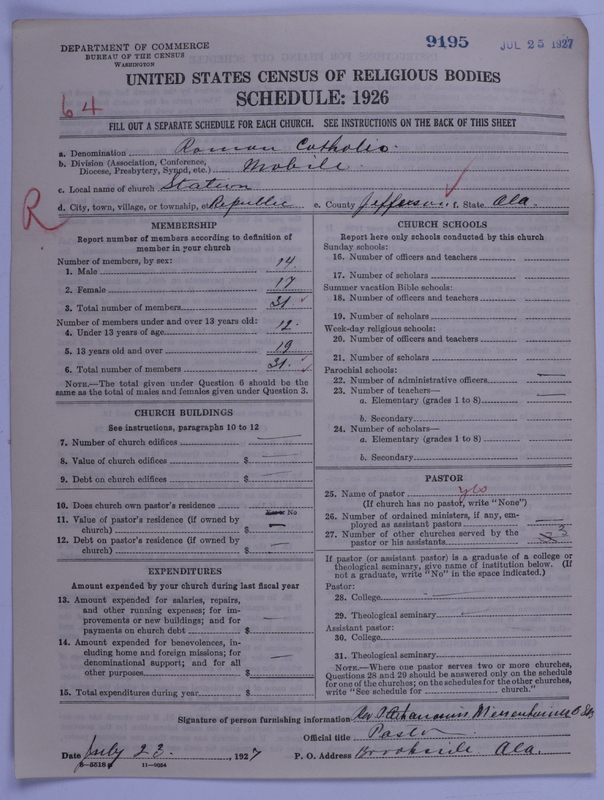 DEPARTMENT OF COMMERCE
BUREAU OF THE CENSUS
WASHINGTON
9195
JUL 25 1927
UNITED STATES CENSUS OF RELIGIOUS BODIES
SCHEDULE: 1926
64
FILL OUT A SEPARATE SCHEDULE FOR EACH CHURCH. SEE INSTRUCTIONS ON THE BACK OF THIS SHEET
a. Denomination Roman Catholic.
b. Division (Association, Conference, Diocese, Presbytery, Synod, etc.) Mobile
c. Local name of church Station
R
d. City, town, village, or township, etc. Republic e. County Jefferson f. State Ala.
MEMBERSHIP
Report number of members according to definition of
member in your church
Number of members, by sex:
1. Male 14
2. Female 17
3. Total number of members 31
Number of members under and over 13 years old:
4. Under 13 years of age 12.
5. 13 years old and over 19
6. Total number of members 31.
NOTE.—The total given under Question 6 should be the
same as the total of males and females given under Question 3.
CHURCH BUILDINGS
See instructions, paragraphs 10 to 12
7. Number of church edifices —
8. Value of church edifices $ —
9. Debt on church edifices $ —
10. Does church own pastor's residence No
11. Value of pastor's residence (if owned by
church) $ —
12. Debt on pastor's residence (if owned by
church) $ —
EXPENDITURES
Amount expended by your church during last fiscal year
13. Amount expended for salaries, repairs,
and other running expenses; for im-
provements or new buildings; and for
payments on church debt $ —
14. Amount expended for benevolences, in-
cluding home and foreign missions; for
denominational support; and for all
other purposes $ —
15. Total expenditures during year $
CHURCH SCHOOLS
Report here only schools conducted by this church
Sunday schools:
16. Number of officers and teachers
17. Number of scholars
Summer vacation Bible schools:
18. Number of officers and teachers
19. Number of scholars
Week-day religious schools:
20. Number of officers and teachers
21. Number of scholars
Parochial schools:
22. Number of administrative officers —
23. Number of teachers—
a. Elementary (grades 1 to 8) —
b. Secondary
24. Number of scholars—
a. Elementary (grades 1 to 8)
b. Secondary
PASTOR
25. Name of pastor yes
(If church has no pastor, write "None")
26. Number of ordained ministers, if any, em-
ployed as assistant pastors —
27. Number of other churches served by the
pastor or his assistants 3
If pastor (or assistant pastor) is a graduate of a college or
theological seminary, give name of institution below. (If
not a graduate, write "No" in the space indicated.)
Pastor:
28. College —
29. Theological seminary —
Assistant pastor:
30. College —
31. Theological seminary
NOTE.—Where one pastor serves two or more churches,
Questions 28 and 29 should be answered only on the schedule
for one of the churches; on the schedules for the other churches,
write "See schedule for church."
Signature of person furnishing information Rev.
Official title Pastor
Date July 23. , 1927 P. O. Address Brookside Ala.
8-5518 11-9034